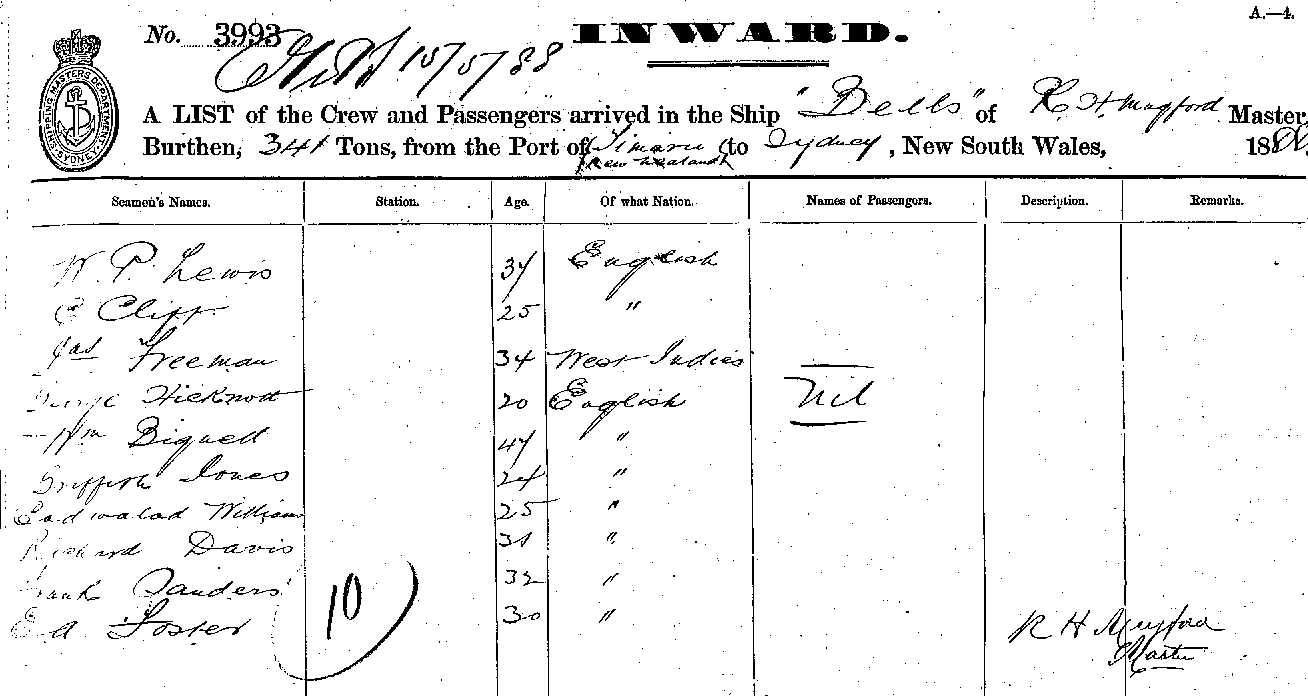 A.—4.
No. 3993
INWARD.
15/5/88
SHIPPING MASTERS DEPARTMENT SYDNEY
A LIST of the Crew and Passengers arrived in the Ship "Bells" of R. H. Mugford Master,
Burthen, 341 Tons, from the Port of Timaru to Sydney, New South Wales, 188
New Zealand
Seamen's Names. Station. Age. Of what Nation. Names of Passengers. Description. Remarks.
W. P. Lewis 37 English
E Cliff 25 "
Jas Freeman 34 West Indies
George Hicknott 20 English Nil
Wm Bignell 47 "
Griffith Jones 24 "
Cadwalad Williams 25 "
Richard Davis 31 "
Frank Sanders 32 "
E A Foster 10 30 " R H Mugford
Master